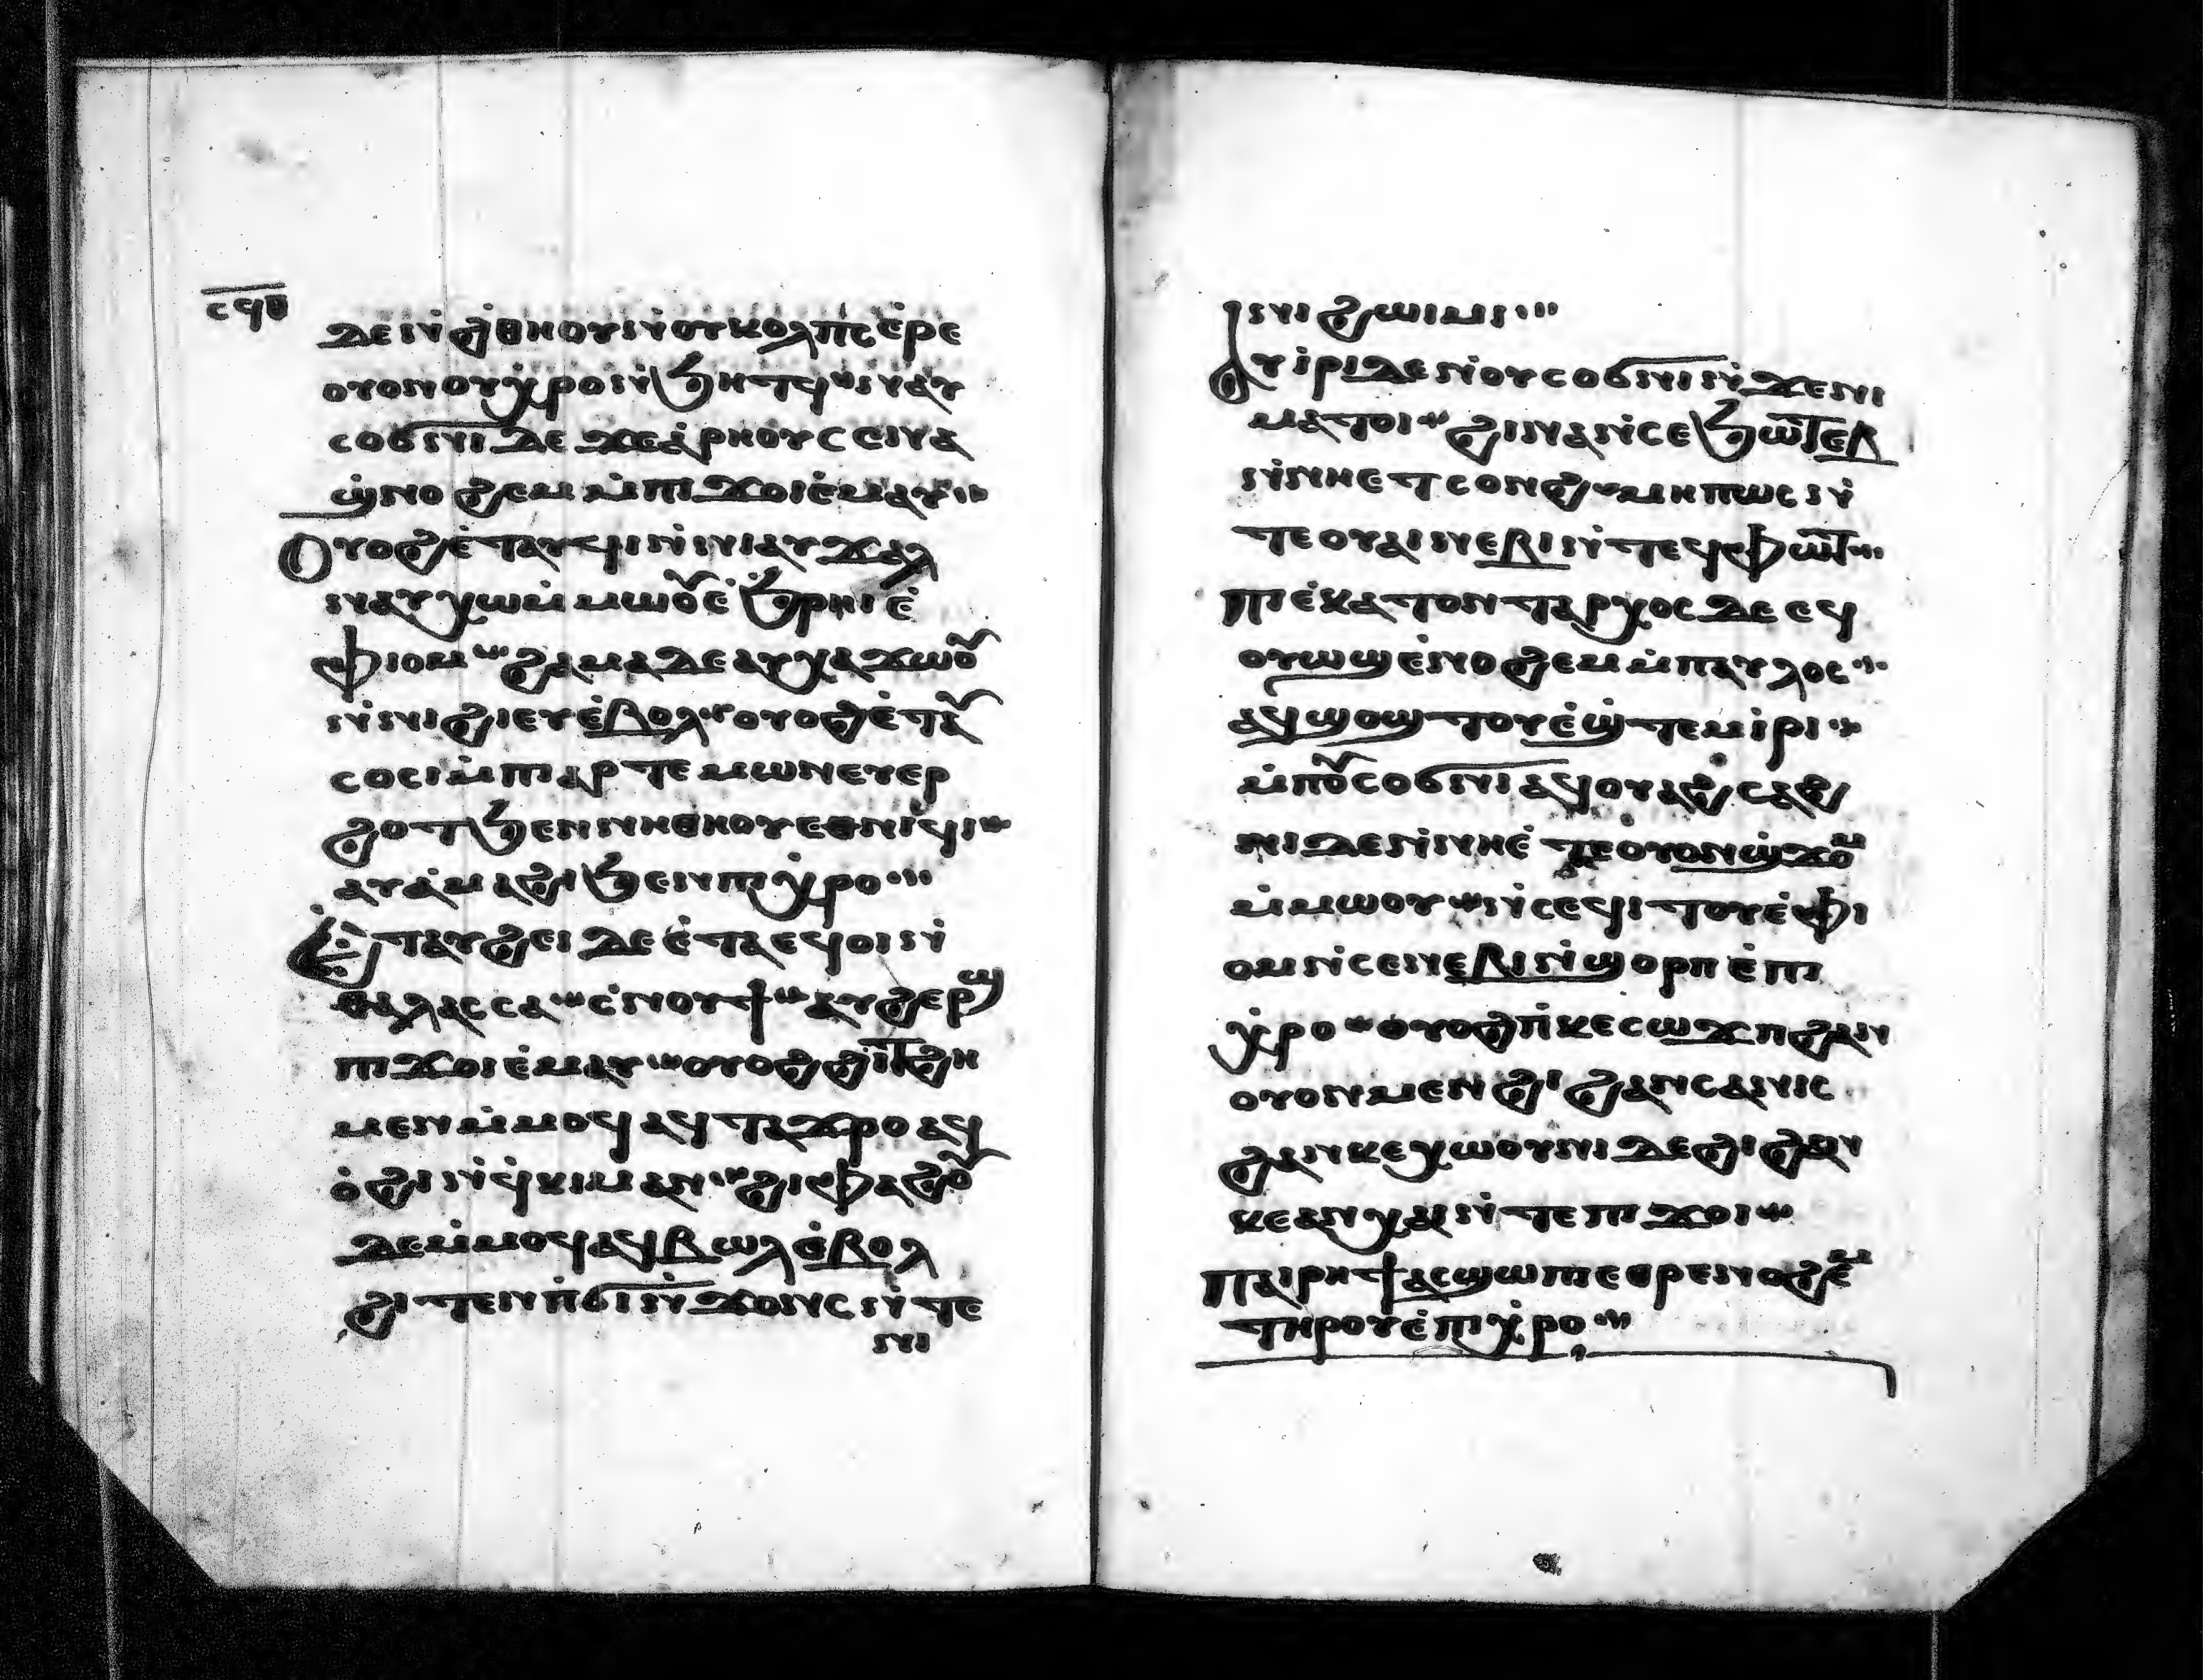 ⲥϥⲑ
ⲇⲉ ⲛ̇ϩ̇ⲑⲏⲟⲩ ⲛ̇ⲟⲩⲕⲟⲗⲡⲥ ⲉ̇ⲣⲉ
ⲟⲩⲟⲛ ⲟⲩⲭ̇ⲣⲟ ⲛ̇ϧⲏⲧϥ ⲛⲁⲩ
ⲥⲟϭⲛⲓ ⲇⲉ ϫⲉ ⲁ̇ⲣⲏⲟⲩ ⲥⲉⲛⲁ
ϣ̇ⲛⲟϩⲉⲙ ⲙ̇ⲡⲓϫⲟⲓ ⲉ̇ⲙⲁⲩ
Ⲟⲩⲟϩ ⲉ̇ⲧⲁⲩϥⲓ ⲛ̇ⲛⲓⲁⲩϫⲁⲗ
ⲛⲁⲩⲭⲱ ⲙ̇ⲙⲱⲟⲩ ⲉ̇ϧ̇ⲣⲏⲓ ⲉ̇
ⲫⲓⲟⲙ ϩⲁⲙⲁ ⲇⲉ ⲁⲩⲭⲁϫⲱⲟⲩ
ⲛ̇ⲛⲓϩⲓⲉⲩ ⲉ̇ⲃⲟⲗ ⲟⲩⲟϩ ⲉ̇ⲧⲁⲩ
ⲥⲟⲥⲓ ⲙ̇ⲡⲓⲁⲣⲧⲉⲙⲱⲛ ⲉⲩⲉⲣ
ϩⲟⲧ ϧⲉⲛ ⲛⲏⲑⲏⲟⲩ ⲉⲑⲛⲓϥⲓ
ⲁⲩⲁ̇ⲙⲁϩⲓ ϧⲉⲛ ⲡⲓⲭ̇ⲣⲟ
Ⲉ̇ⲧⲁⲩϩⲉⲓ ⲇⲉ ⲉ̇ⲧⲁⲉϥⲟⲓ ⲛ̇
ⲑⲁⲗⲁⲥⲥⲁ ⲥ̇ⲛⲟⲩϯ ⲁⲩϩⲉⲣϣ
ⲡⲓϫⲟⲓ ⲉ̇ⲙⲁⲩ ⲟⲩⲟϩ ϩⲓⲧϩⲏ
ⲙⲉⲛ ⲙ̇ⲙⲟϥ ⲁϥⲧⲁϫⲣⲟ ⲁϥ
ⲟ̇ϩⲓ ⲛ̇ϥ̇ⲕⲓⲙ ⲁⲛ ϩⲓⲫⲁϩⲟⲩ
ⲇⲉ ⲙ̇ⲙⲟϥ ⲁϥⲃⲱⲗ ⲉ̇ⲃⲟⲗ
ϩⲓⲧⲉⲛ ⲡ̇ϭⲓⲛ̇ϫⲟⲛⲥ ⲛ̇ⲧⲉ
ⲛⲓ
ⲛⲓϩⲱⲓⲙⲓ
Ⲁⲩⲓ̇ⲣⲓ ⲇⲉ ⲛ̇ⲟⲩⲥⲟϭⲛⲓ ⲛ̇ϫⲉ ⲛⲓ
ⲙⲁⲧⲟⲓ ϩⲓⲛⲁ ⲛ̇ⲥⲉϧⲱⲧⲉⲃ
ⲛ̇ⲛⲏⲉⲧⲥⲟⲛϩ ⲙⲏⲡⲱⲥ ⲛ̇
ⲧⲉ ⲟⲩⲁⲓ ⲛⲉⲃⲓ ⲛ̇ⲧⲉϥⲫⲱⲧ
ⲡⲓⲉ̇ⲕⲁⲧⲟⲛⲧⲁⲣⲭⲟⲥ ⲇⲉ ⲉϥ
ⲟⲩⲱϣ ⲉ̇ⲛⲟϩⲉⲙ ⲙ̇ⲡⲁⲩⲗⲟⲥ
ⲁϥϣⲟϣⲧⲟⲩ ⲉ̇ϣ̇ⲧⲉⲙⲓ̇ⲣⲓ
ⲙ̇ⲡⲟⲩⲥⲟϭⲛⲓ ⲁϥⲟⲩⲁϩⲥⲁϩ
ⲛⲓ ⲇⲉ ⲛ̇ⲛⲏⲉ̇ⲧⲉ ⲟⲩⲟⲛ ϣ̇ϫⲟⲙ
ⲙ̇ⲙⲱⲟⲩ ⲛ̇ⲥⲉϥⲓⲧⲟⲩ ⲉ̇ⲫⲓ
ⲟⲙ ⲛ̇ⲥⲉⲛⲉⲃⲓ ⲛ̇ϣⲟⲣⲡ ⲉ̇ⲡⲓ
ⲭ̇ⲣⲟ ⲟⲩⲟϩ ⲡ̇ⲕⲉⲥⲱϫⲡ ϩⲁⲛ
ⲟⲩⲟⲛ ⲙⲉⲛ ϩⲓ ϩⲁⲛⲥⲁⲛⲓⲥ
ϩⲁⲛⲕⲉⲭⲱⲟⲩⲛⲓ ⲇⲉ ϩⲓ ϩⲁⲛ
ⲕⲉⲁⲛⲭⲁⲓ ⲛ̇ⲧⲉ ⲡⲓϫⲟⲓ
Ⲡⲁⲓⲣⲏϯ ⲁⲥϣⲱⲡⲓ ⲉⲑⲣⲉⲛⲟϩⲉⲙ
ⲧⲏⲣⲟⲩ ⲉ̇ⲡⲓⲭ̇ⲣⲟ